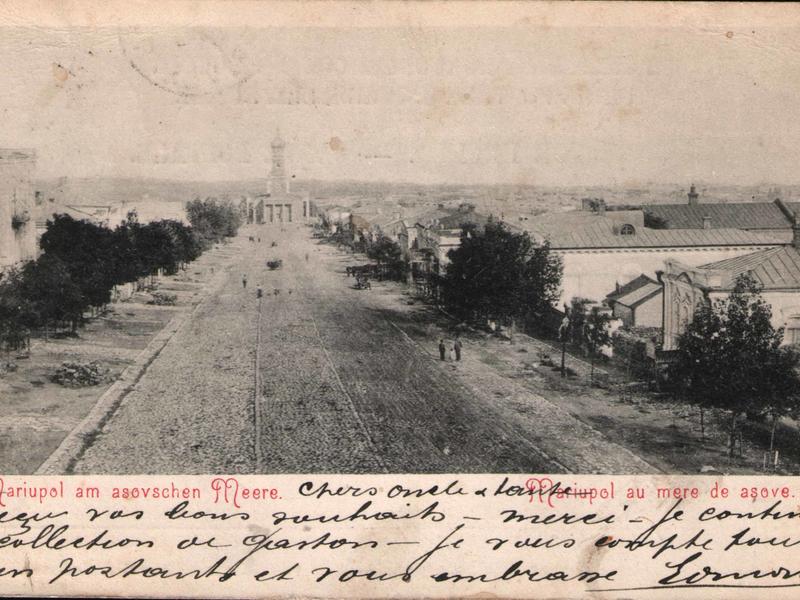 Mariupol am asovschen Meere. Chers oncle & tante Mariupol au mere de asove.
reçu vos bons souhaits - merci - Je contin
collection de Gaston - Je vous compte tous
en postant et vous embrasse